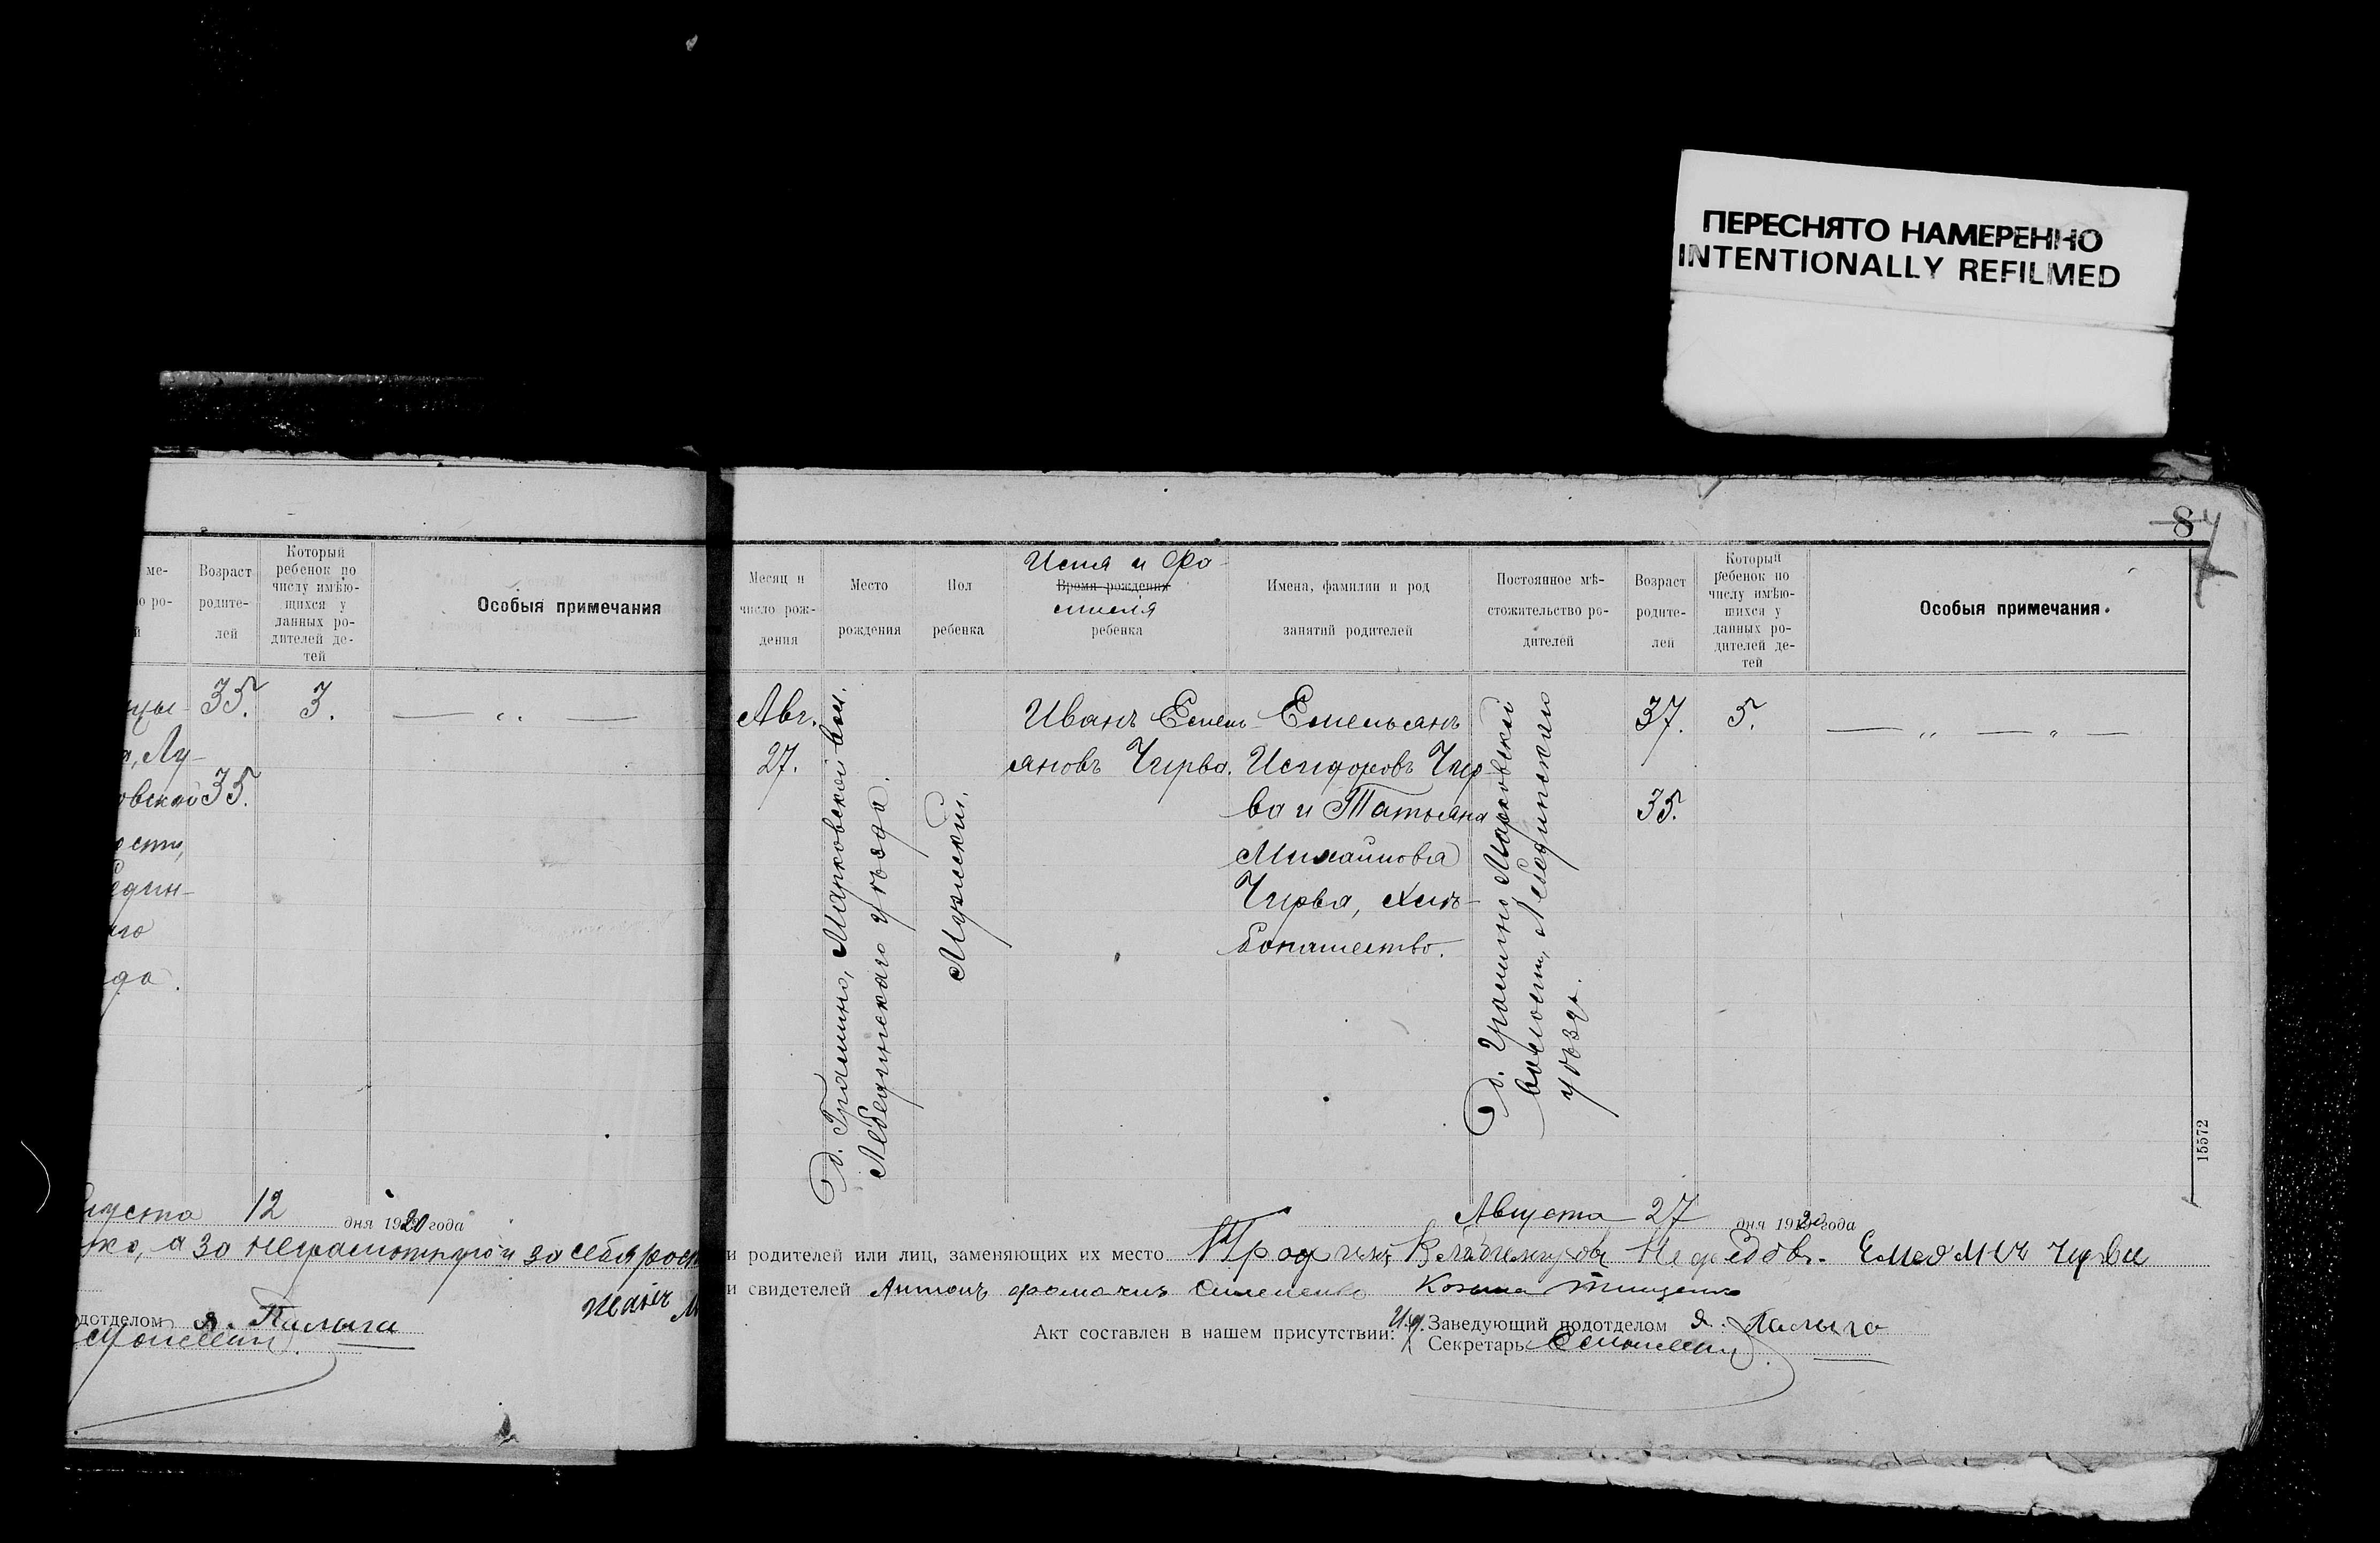 ПЕРЕСНЯТО НАМЕРЕННО
INTENTIONALLY REFILMED
ме-
о ро-
й
Возраст
родите-
лей
Который
ребенок по
числу имѣю-
щихся у
данных ро-
дителей де-
тей
Особыя примечания
35.
3.
— „ —
а, Лу-
овской 35.
ости,
един-
аго
да.
густа 12 дня 1920 года
ко, а за неграмотную и за себя росп
дотделом Я. Палыга
8
Месяц и
число рож-
дения
Место
рождения
Пол
ребенка
Имя и Фа-
Время рождения
милія
ребенка
Имена, фамилии и род
занятий родителей
Постоянное мѣ-
стожительство ро-
дителей
Возраст
родите-
лей
Который
ребенок по
числу имѣю-
щихся у
данных ро-
дителей де-
тей
Особыя примечания.
Авг.
27.
Марковской вол.
Лебединскаго уѣзда.
Мужской.
Иванъ Емель-
яновъ Чирва.
Емельянъ
Исидоровъ Чир-
ва и Татьяна
Михайлова
Чирва, хлѣ-
бопашество.
Марковской
волости, Лебединскаго
уѣзда.
37.
35.
5.
— „ — „ —
15572
Августа 27 дня 1920 года
и родителей или лиц, заменяющих их место Емельянъ Чирва
и свидетелей Антонъ Козьма Тищенко
Акт составлен в нашем присутствии:
И.д. Заведующий подотделом Я. Палыга
Секретарь